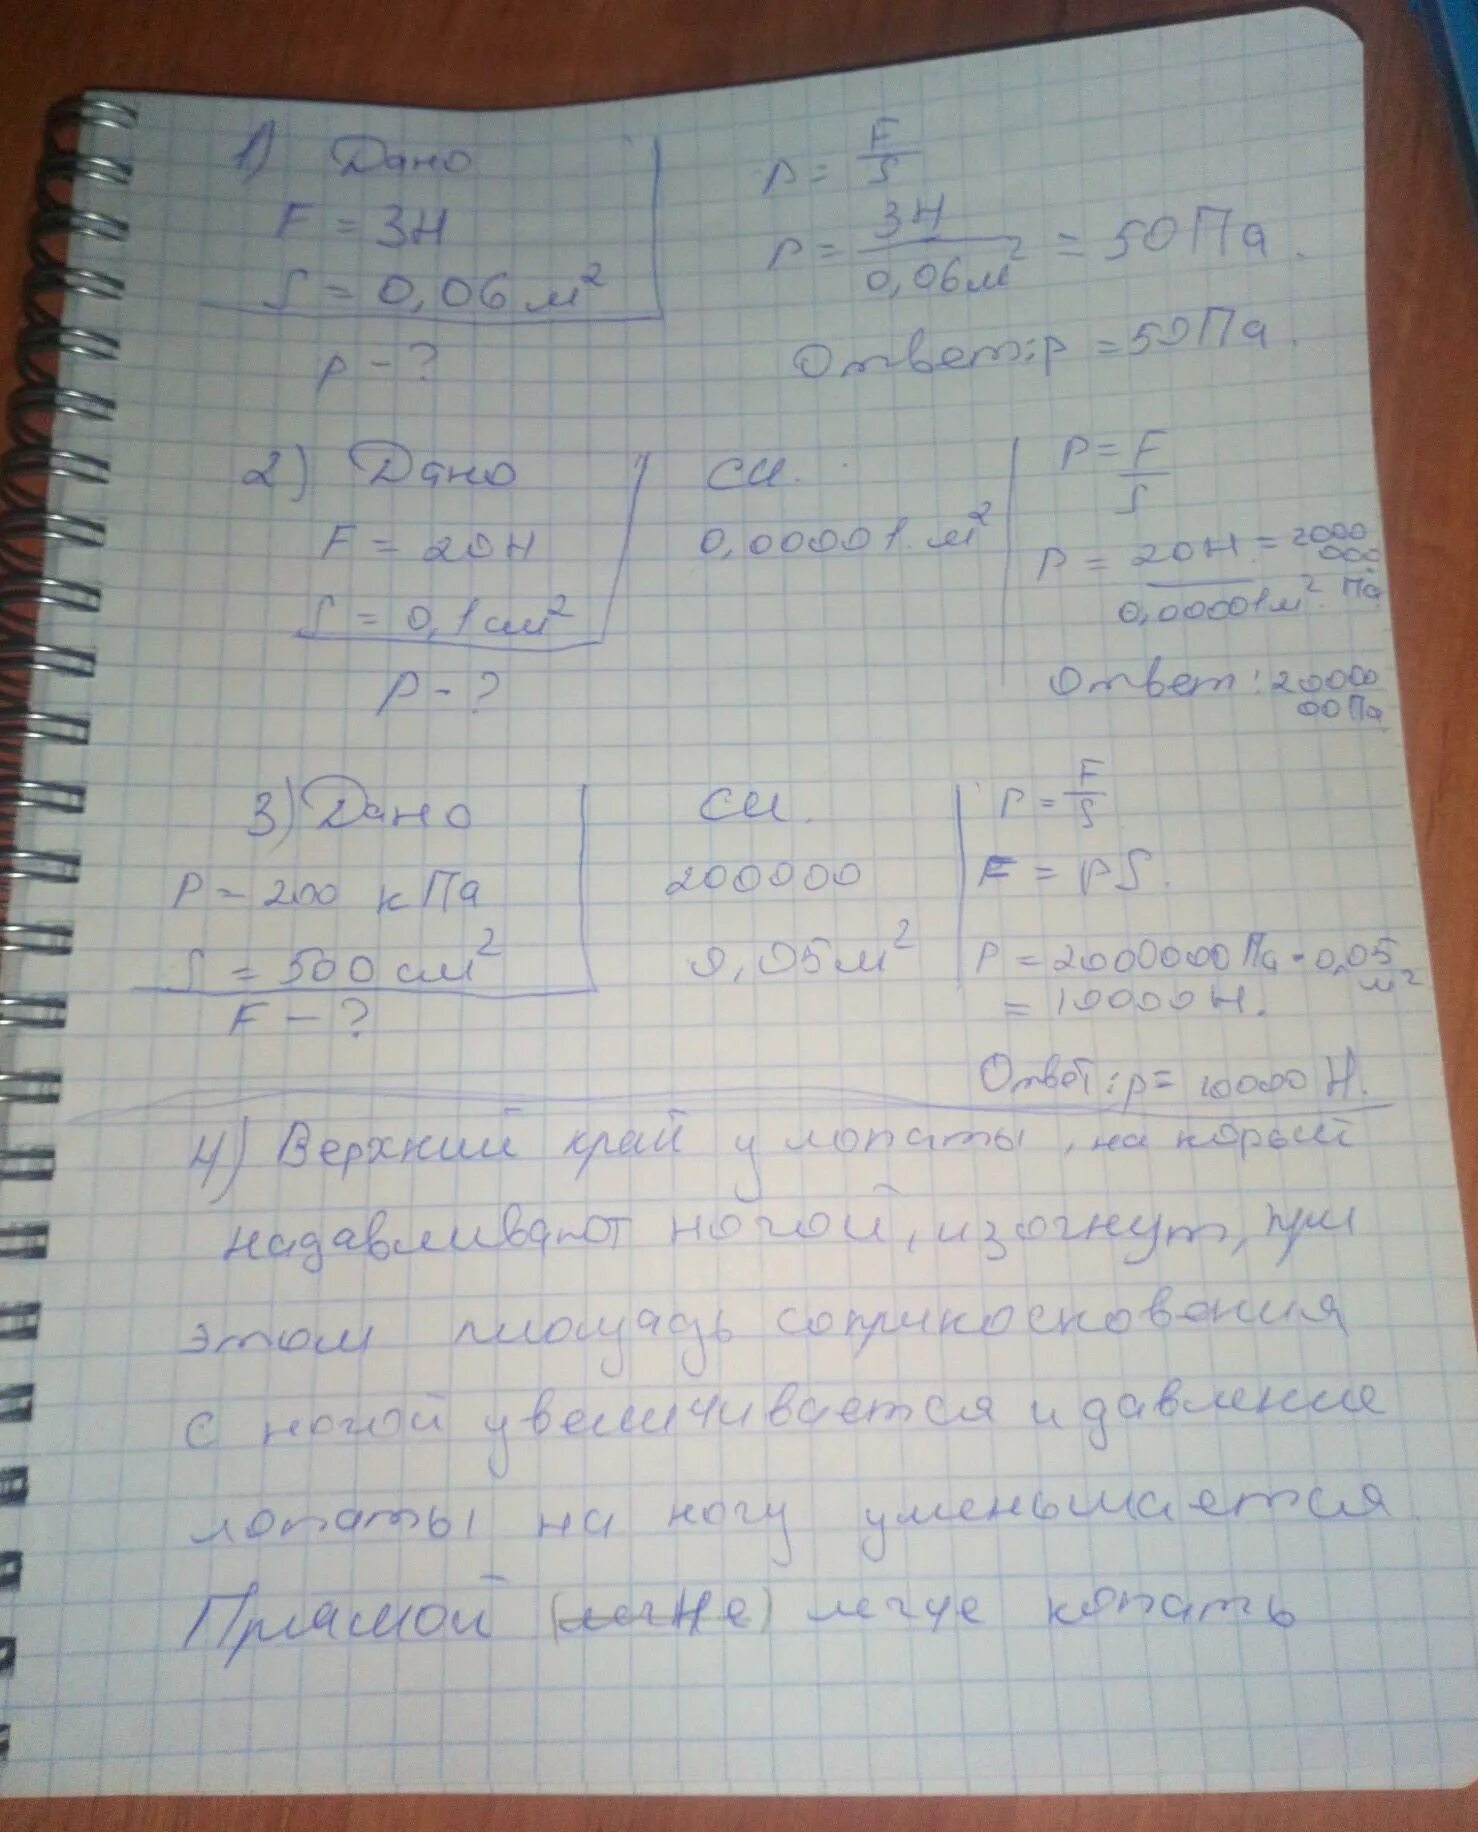 1) Дано
F = 3Н
S = 0,06 м²
p - ?
p = F/S
p = 3Н/0,06м² = 50 Па.
Ответ: p = 50 Па.
2) Дано
F = 20Н
S = 0,1 см²
P - ?
СИ.
0,00001 м²
P = F/S
P = 20Н/0,00001м² = 2000 000 Па
Ответ: 20000 00 Па
3) Дано
P = 200 кПа
S = 500 см²
F - ?
СИ.
200000
0,05 м²
P = F/S
F = PS.
P = 2000000 Па · 0,05 м²
= 10000 Н.
Ответ: p = 10000 Н.
4) Верхний край у лопаты, на корый
надавливают ногой, изогнут, при
этом площадь соприкосновения
с ногой увеличивается и давление
лопаты на ногу уменьшается.
Прямой легче копать